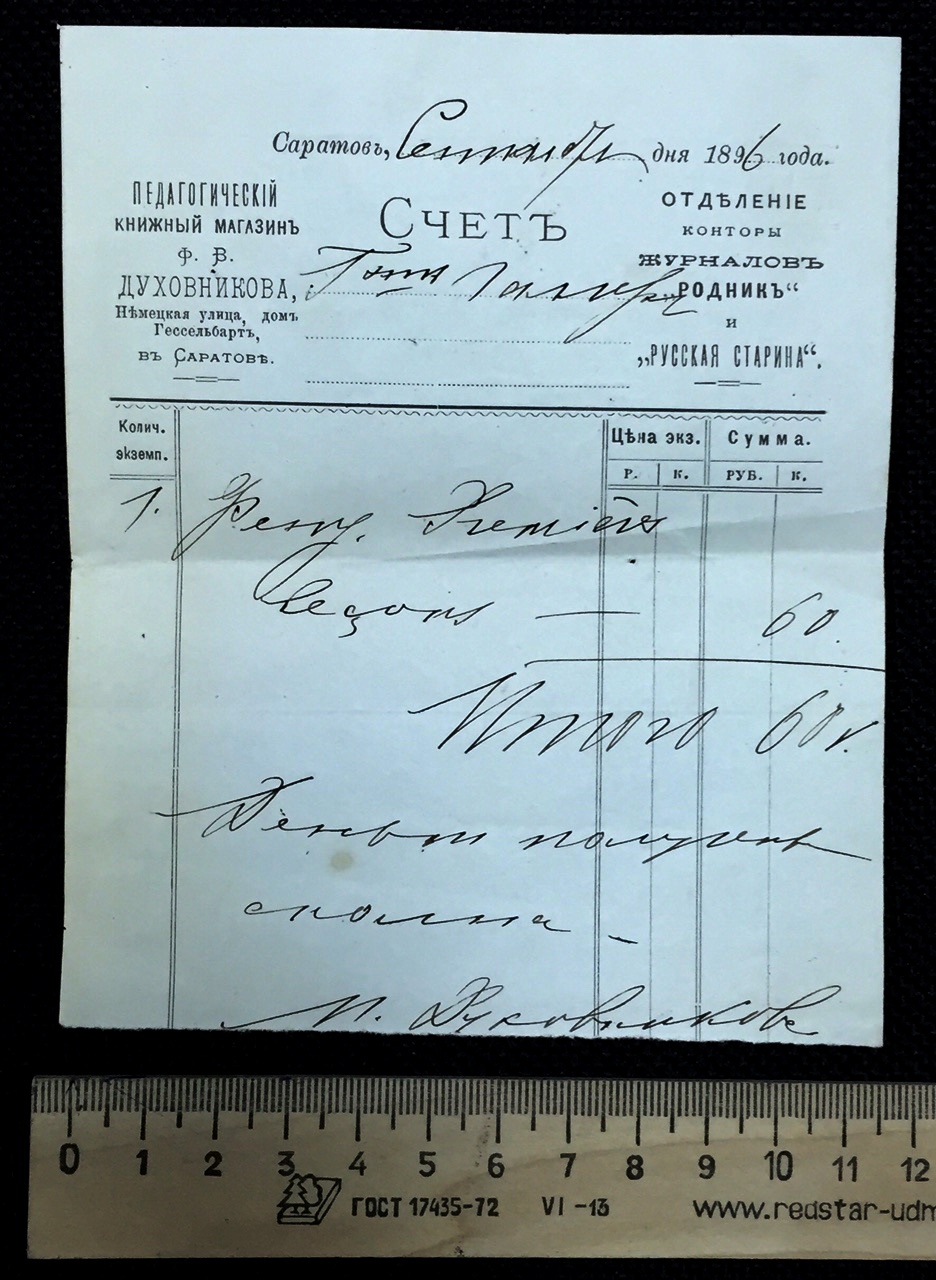 Саратовъ, Сентяб 7 дня 1896 года.
ПЕДАГОГИЧЕСКІЙ
КНИЖНЫЙ МАГАЗИНЪ
Ф. В.
ДУХОВНИКОВА,
Нѣмецкая улица, домъ
Гессельбартъ,
ВЪ САРАТОВѢ.
СЧЕТЪ
Г-жи
ОТДѢЛЕНІЕ
КОНТОРЫ
ЖУРНАЛОВЪ
„РОДНИКЪ“
И
„РУССКАЯ СТАРИНА“.
Колич. экземп.
Цѣна экз.
Сумма.
Р. К. РУБ. К.
1. Premières
leçons — 60.
Итого 60 к.
Деньги получилъ
сполна –
М. Духовниковъ
0 1 2 3 4 5 6 7 8 9 10 11 12
ГОСТ 17435-72 VI-13 www.redstar-udm